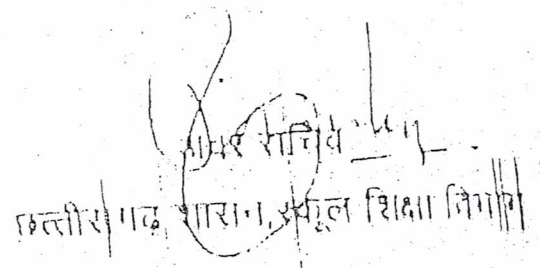 अवर सचिव
छत्तीसगढ़ शासन, स्कूल शिक्षा विभाग